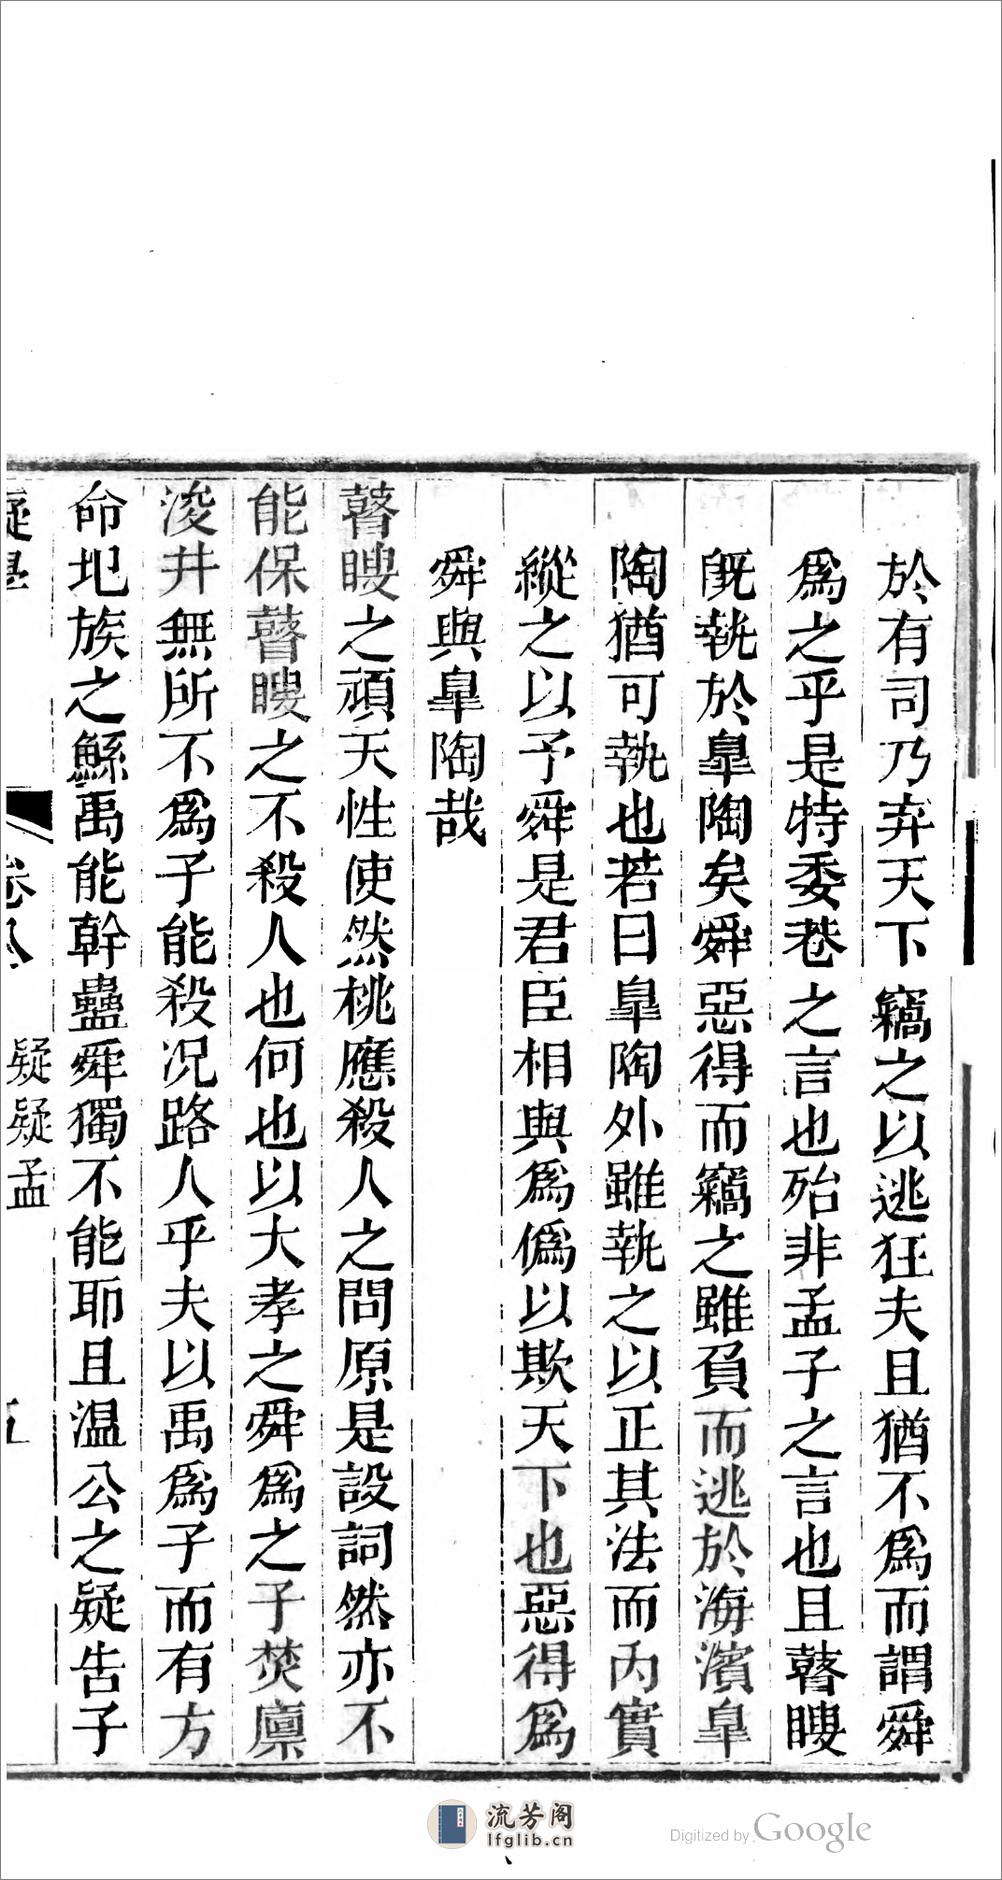 於有司乃弃天下竊之以逃狂夫且猶不爲而謂舜
爲之乎是特委巷之言也殆非孟子之言也且瞽瞍
旣執於臯陶矣舜惡得而竊之雖負而逃於海濱臯
陶猶可執也若曰臯陶外雖執之以正其法而內實
縱之以予舜是君臣相與爲僞以欺天下也惡得爲
舜與臯陶哉
瞽瞍之頑天性使然桃應殺人之問原是設詞然亦不
能保瞽瞍之不殺人也何也以大孝之舜爲之子焚廩
浚井無所不爲子能殺况路人乎夫以禹爲子而有方
命圯族之鯀禹能幹蠱舜獨不能耶且温公之疑告子
卷八 疑疑孟 五
流芳阁
lfglib.cn
Digitized by Google